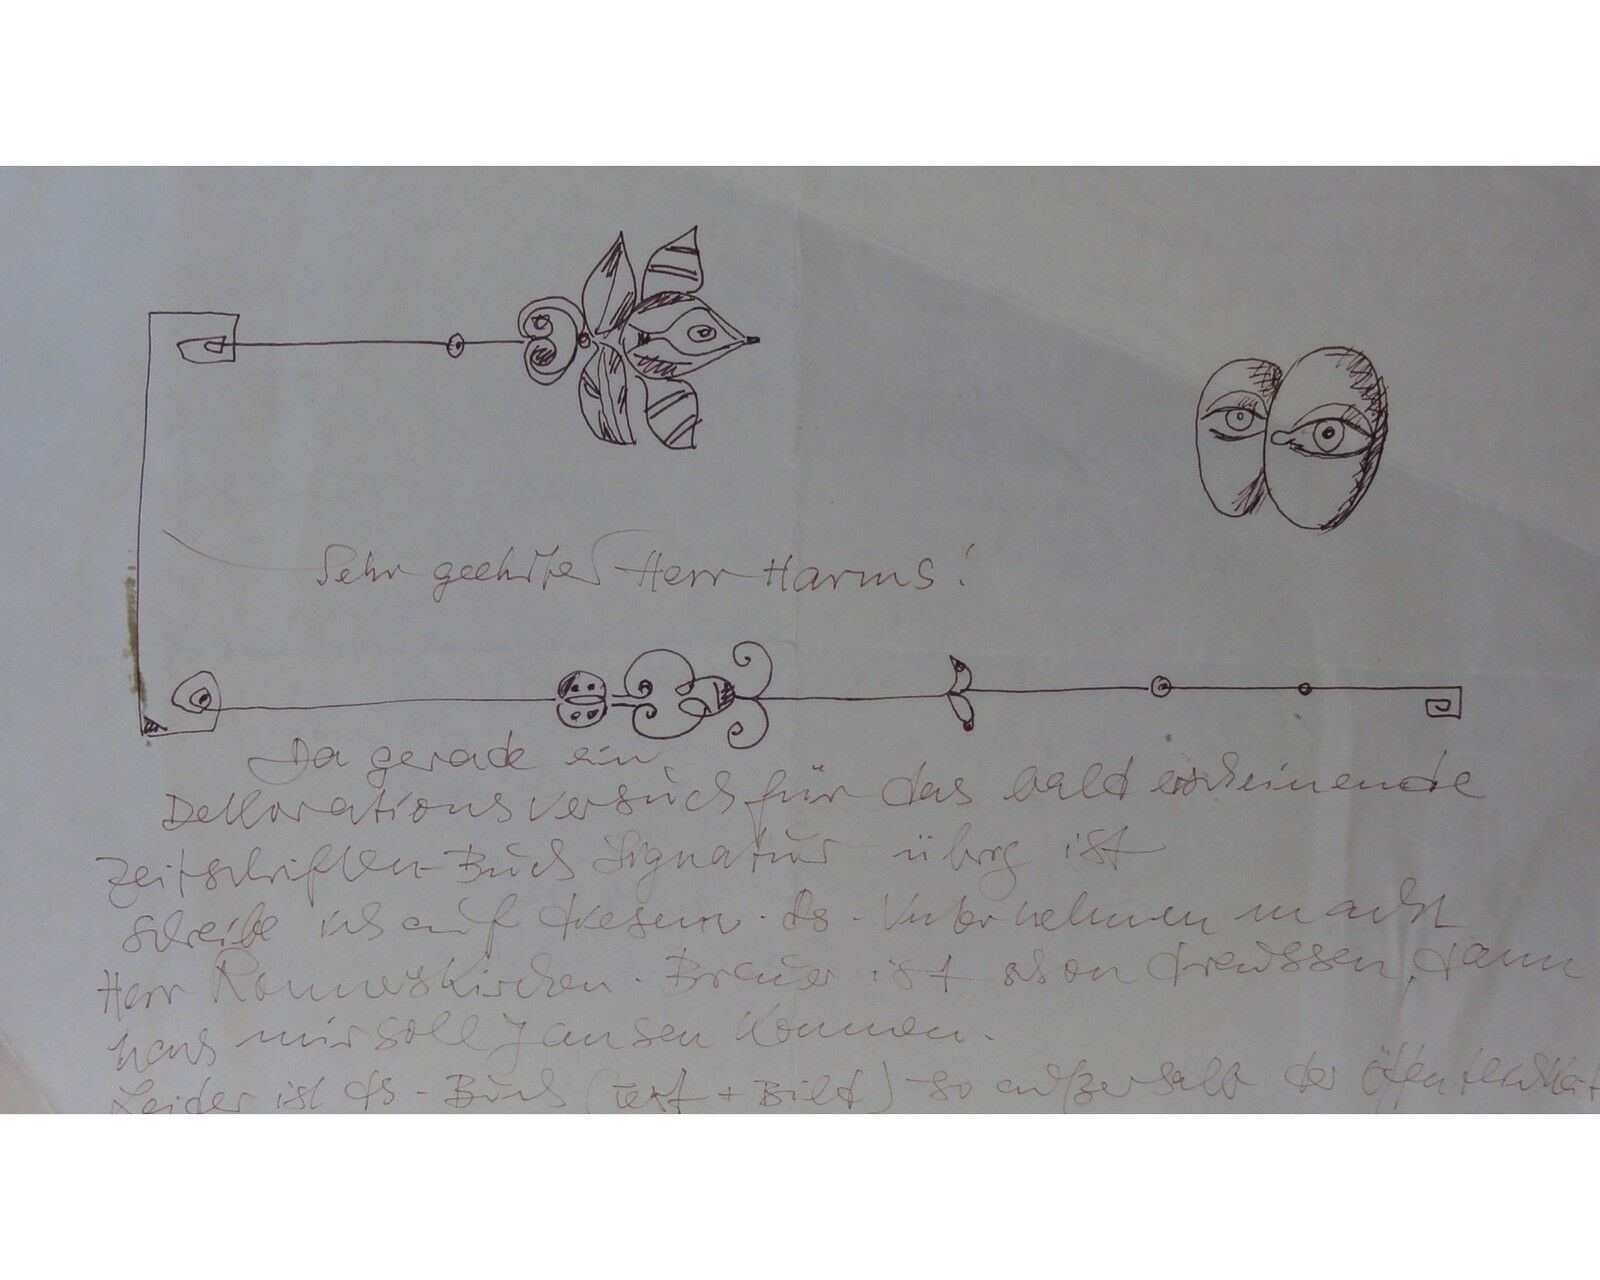 Sehr geehrter Herr Harms!
Da gerade ein
Dekorationsversuch für das bald erscheinende
Zeitschriften-Buch Signatur übrig ist
schreibe ich auf diesem. Ds. Unternehmen macht
Herr Rommerskirchen. Brauer ist schon draussen, dann
nach mir soll Janssen kommen.
Leider ist ds. Buch (Text + Bild) so außerhalb der Öffentlichkeit